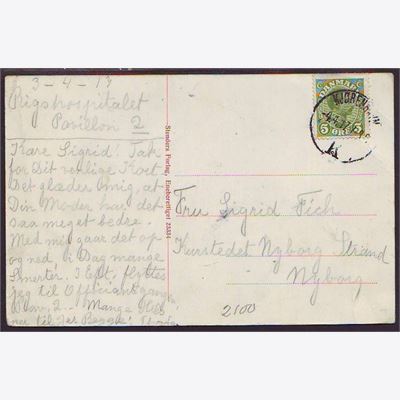 3-4-13
Rigshospitalet
Pavillon 2
Kære Sigrid! Tak
for Dit venlige Kort
Det glæder mig, at
Din Moder har det
saa meget bedre.
Med mig gaar det op
og ned i Dag mange
Smerter. I Eft. flyttes
jeg til Officiantgangen
2 - Mange
til Jer Begge!
Stenders Forlag, Eneberettiget 25534
DANMARK
5 ØRE 5
KJØBENHAVN
K
Fru Sigrid Fich
Kurstedet Nyborg Strand
Nyborg
2100